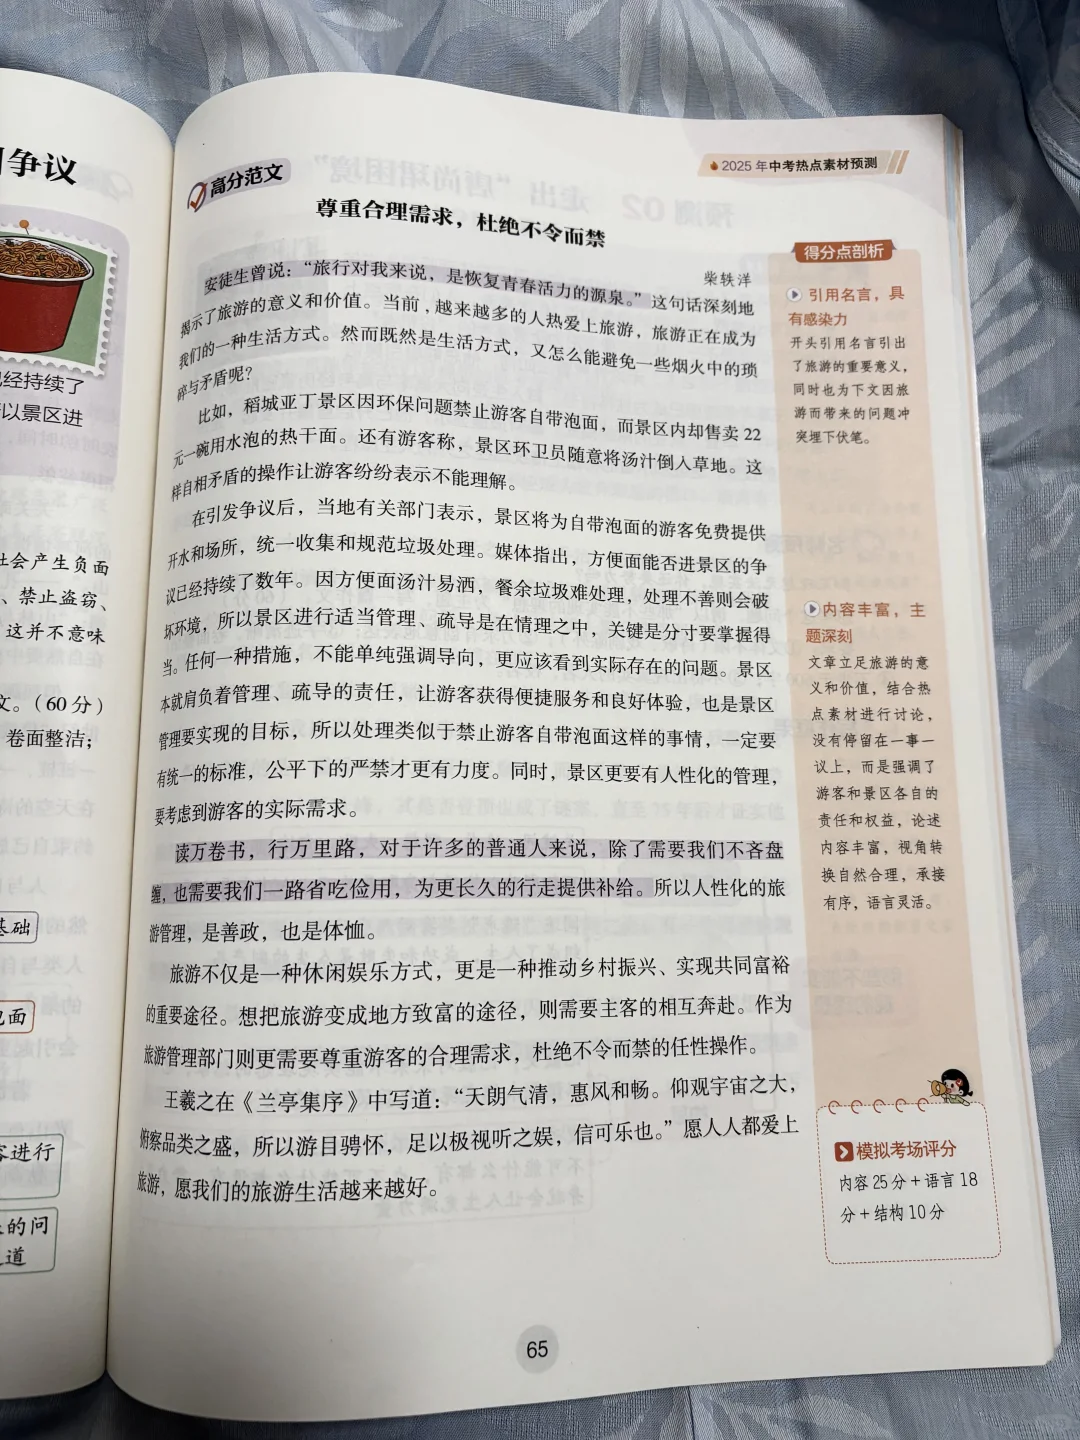 争议
已经持续了
所以景区进
社会产生负面
、禁止盗窃、
这并不意味
文。（60分）
卷面整洁；
基础
包面
容进行
的问
道
2025年中考热点素材预测
高分范文
尊重合理需求，杜绝不令而禁
柴轶洋
安徒生曾说：“旅行对我来说，是恢复青春活力的源泉。”这句话深刻地
揭示了旅游的意义和价值。当前，越来越多的人热爱上旅游，旅游正在成为
我们的一种生活方式。然而既然是生活方式，又怎么能避免一些烟火中的琐
碎与矛盾呢？
比如，稻城亚丁景区因环保问题禁止游客自带泡面，而景区内却售卖22
元一碗用水泡的热干面。还有游客称，景区环卫员随意将汤汁倒入草地。这
样自相矛盾的操作让游客纷纷表示不能理解。
在引发争议后，当地有关部门表示，景区将为自带泡面的游客免费提供
开水和场所，统一收集和规范垃圾处理。媒体指出，方便面能否进景区的争
议已经持续了数年。因方便面汤汁易洒，餐余垃圾难处理，处理不善则会破
坏环境，所以景区进行适当管理、疏导是在情理之中，关键是分寸要掌握得
当。任何一种措施，不能单纯强调导向，更应该看到实际存在的问题。景区
本就肩负着管理、疏导的责任，让游客获得便捷服务和良好体验，也是景区
管理要实现的目标，所以处理类似于禁止游客自带泡面这样的事情，一定要
有统一的标准，公平下的严禁才更有力度。同时，景区更要有人性化的管理，
要考虑到游客的实际需求。
读万卷书，行万里路，对于许多的普通人来说，除了需要我们不吝盘
缠，也需要我们一路省吃俭用，为更长久的行走提供补给。所以人性化的旅
游管理，是善政，也是体恤。
旅游不仅是一种休闲娱乐方式，更是一种推动乡村振兴、实现共同富裕
的重要途径。想把旅游变成地方致富的途径，则需要主客的相互奔赴。作为
旅游管理部门则更需要尊重游客的合理需求，杜绝不令而禁的任性操作。
王羲之在《兰亭集序》中写道：“天朗气清，惠风和畅。仰观宇宙之大，
俯察品类之盛，所以游目骋怀，足以极视听之娱，信可乐也。”愿人人都爱上
旅游，愿我们的旅游生活越来越好。
得分点剖析
引用名言，具
有感染力
开头引用名言引出
了旅游的重要意义，
同时也为下文因旅
游而带来的问题冲
突埋下伏笔。
内容丰富，主
题深刻
文章立足旅游的意
义和价值，结合热
点素材进行讨论，
没有停留在一事一
议上，而是强调了
游客和景区各自的
责任和权益，论述
内容丰富，视角转
换自然合理，承接
有序，语言灵活。
模拟考场评分
内容25分＋语言18
分＋结构10分
65